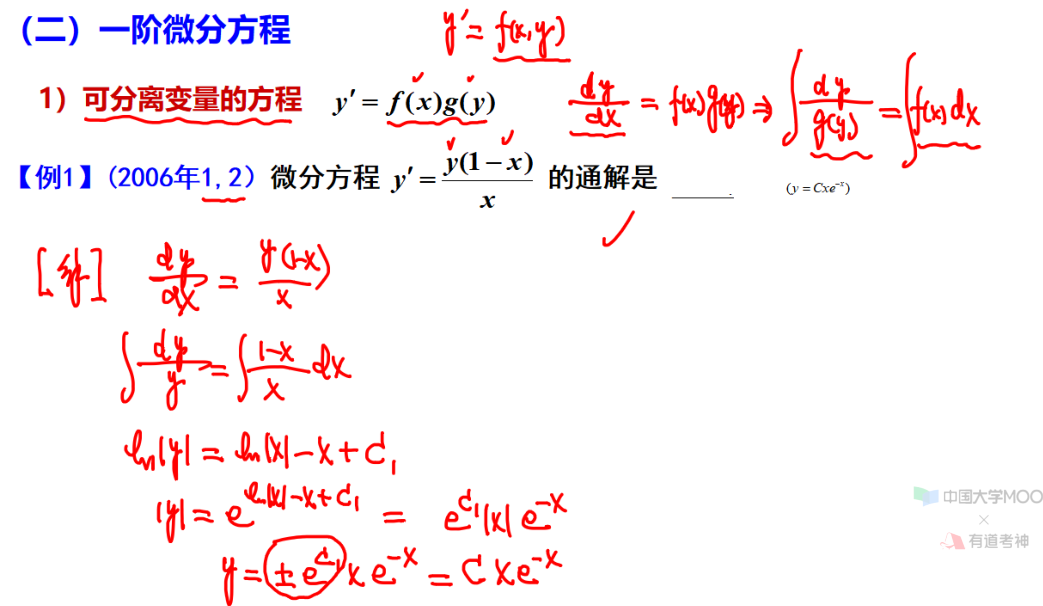 （二）一阶微分方程 y′ = f(x,y)
1）可分离变量的方程 y′ = f(x)g(y) dy/dx = f(x)g(y) ⇒ ∫ dy/g(y) = ∫ f(x)dx
【例1】(2006年1,2）微分方程 y′ = y(1−x)/x 的通解是 ____. (y = Cxe^{-x})
[解] dy/dx = y(1-x)/x
∫ dy/y = ∫ (1-x)/x dx
ln|y| = ln|x| - x + C₁
|y| = e^{ln|x| - x + C₁} = e^{C₁}|x|e^{-x}
y = ±e^{C₁}xe^{-x} = Cxe^{-x}
中国大学MOO
×
有道考神